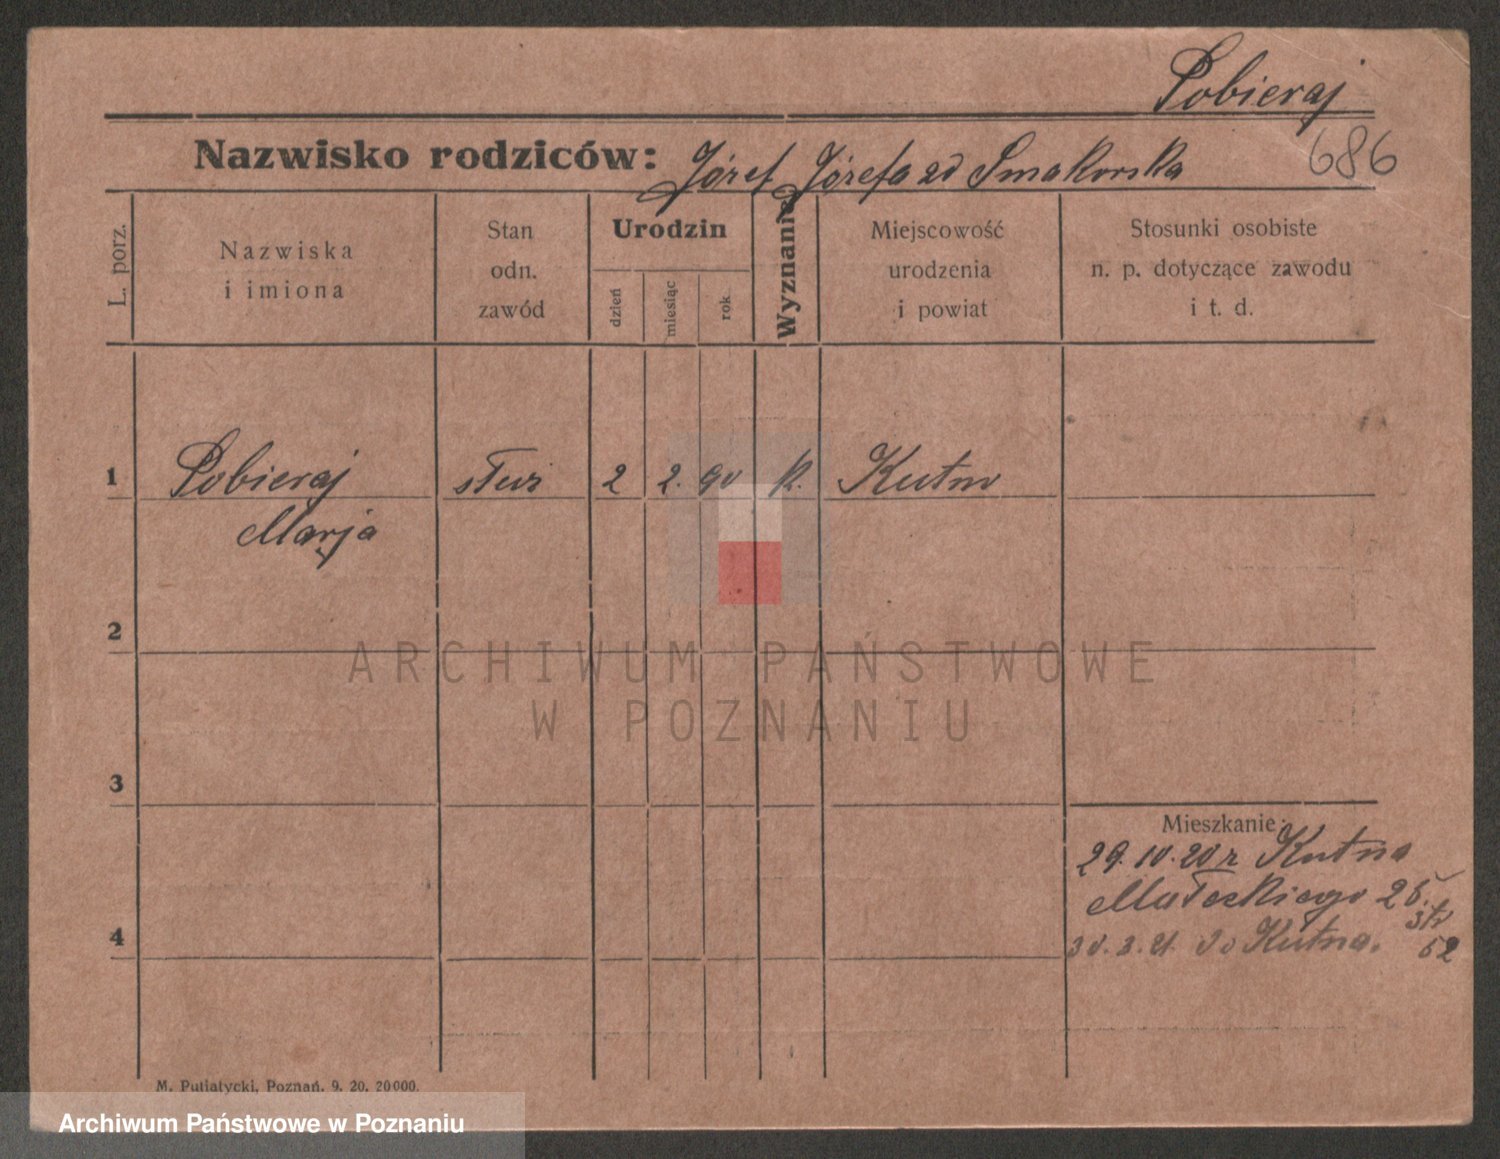 Pobieraj
Nazwisko rodziców: Józef Józefa zd Smakorska
686
L. porz.
Nazwiska
i imiona
Stan
odn.
zawód
Urodzin
dzień
miesiąc
rok
Wyznanie
Miejscowość
urodzenia
i powiat
Stosunki osobiste
n. p. dotyczące zawodu
i t. d.
1 Pobieraj służ 2 2. 90 k. Kutno
Marja
2
ARCHIWUM PAŃSTWOWE
W POZNANIU
3
Mieszkanie:
29.10.20 r Kutna
Małeckiego 25.
4
30.3.21 do Kutna. 52
M. Putiatycki, Poznań. 9. 20. 20000.
Archiwum Państwowe w Poznaniu